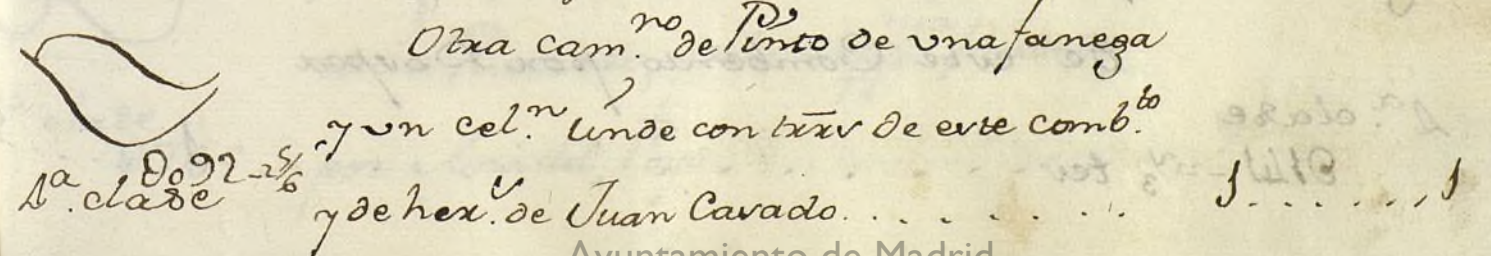 Otra cam.no de Pinto de una fanega
y un cel.n linde con trrs de este comb.to
1.a clase
y de her.s de Juan Casado. . . . . . . . 1. . . . . . , 1
Ayuntamiento de Madrid